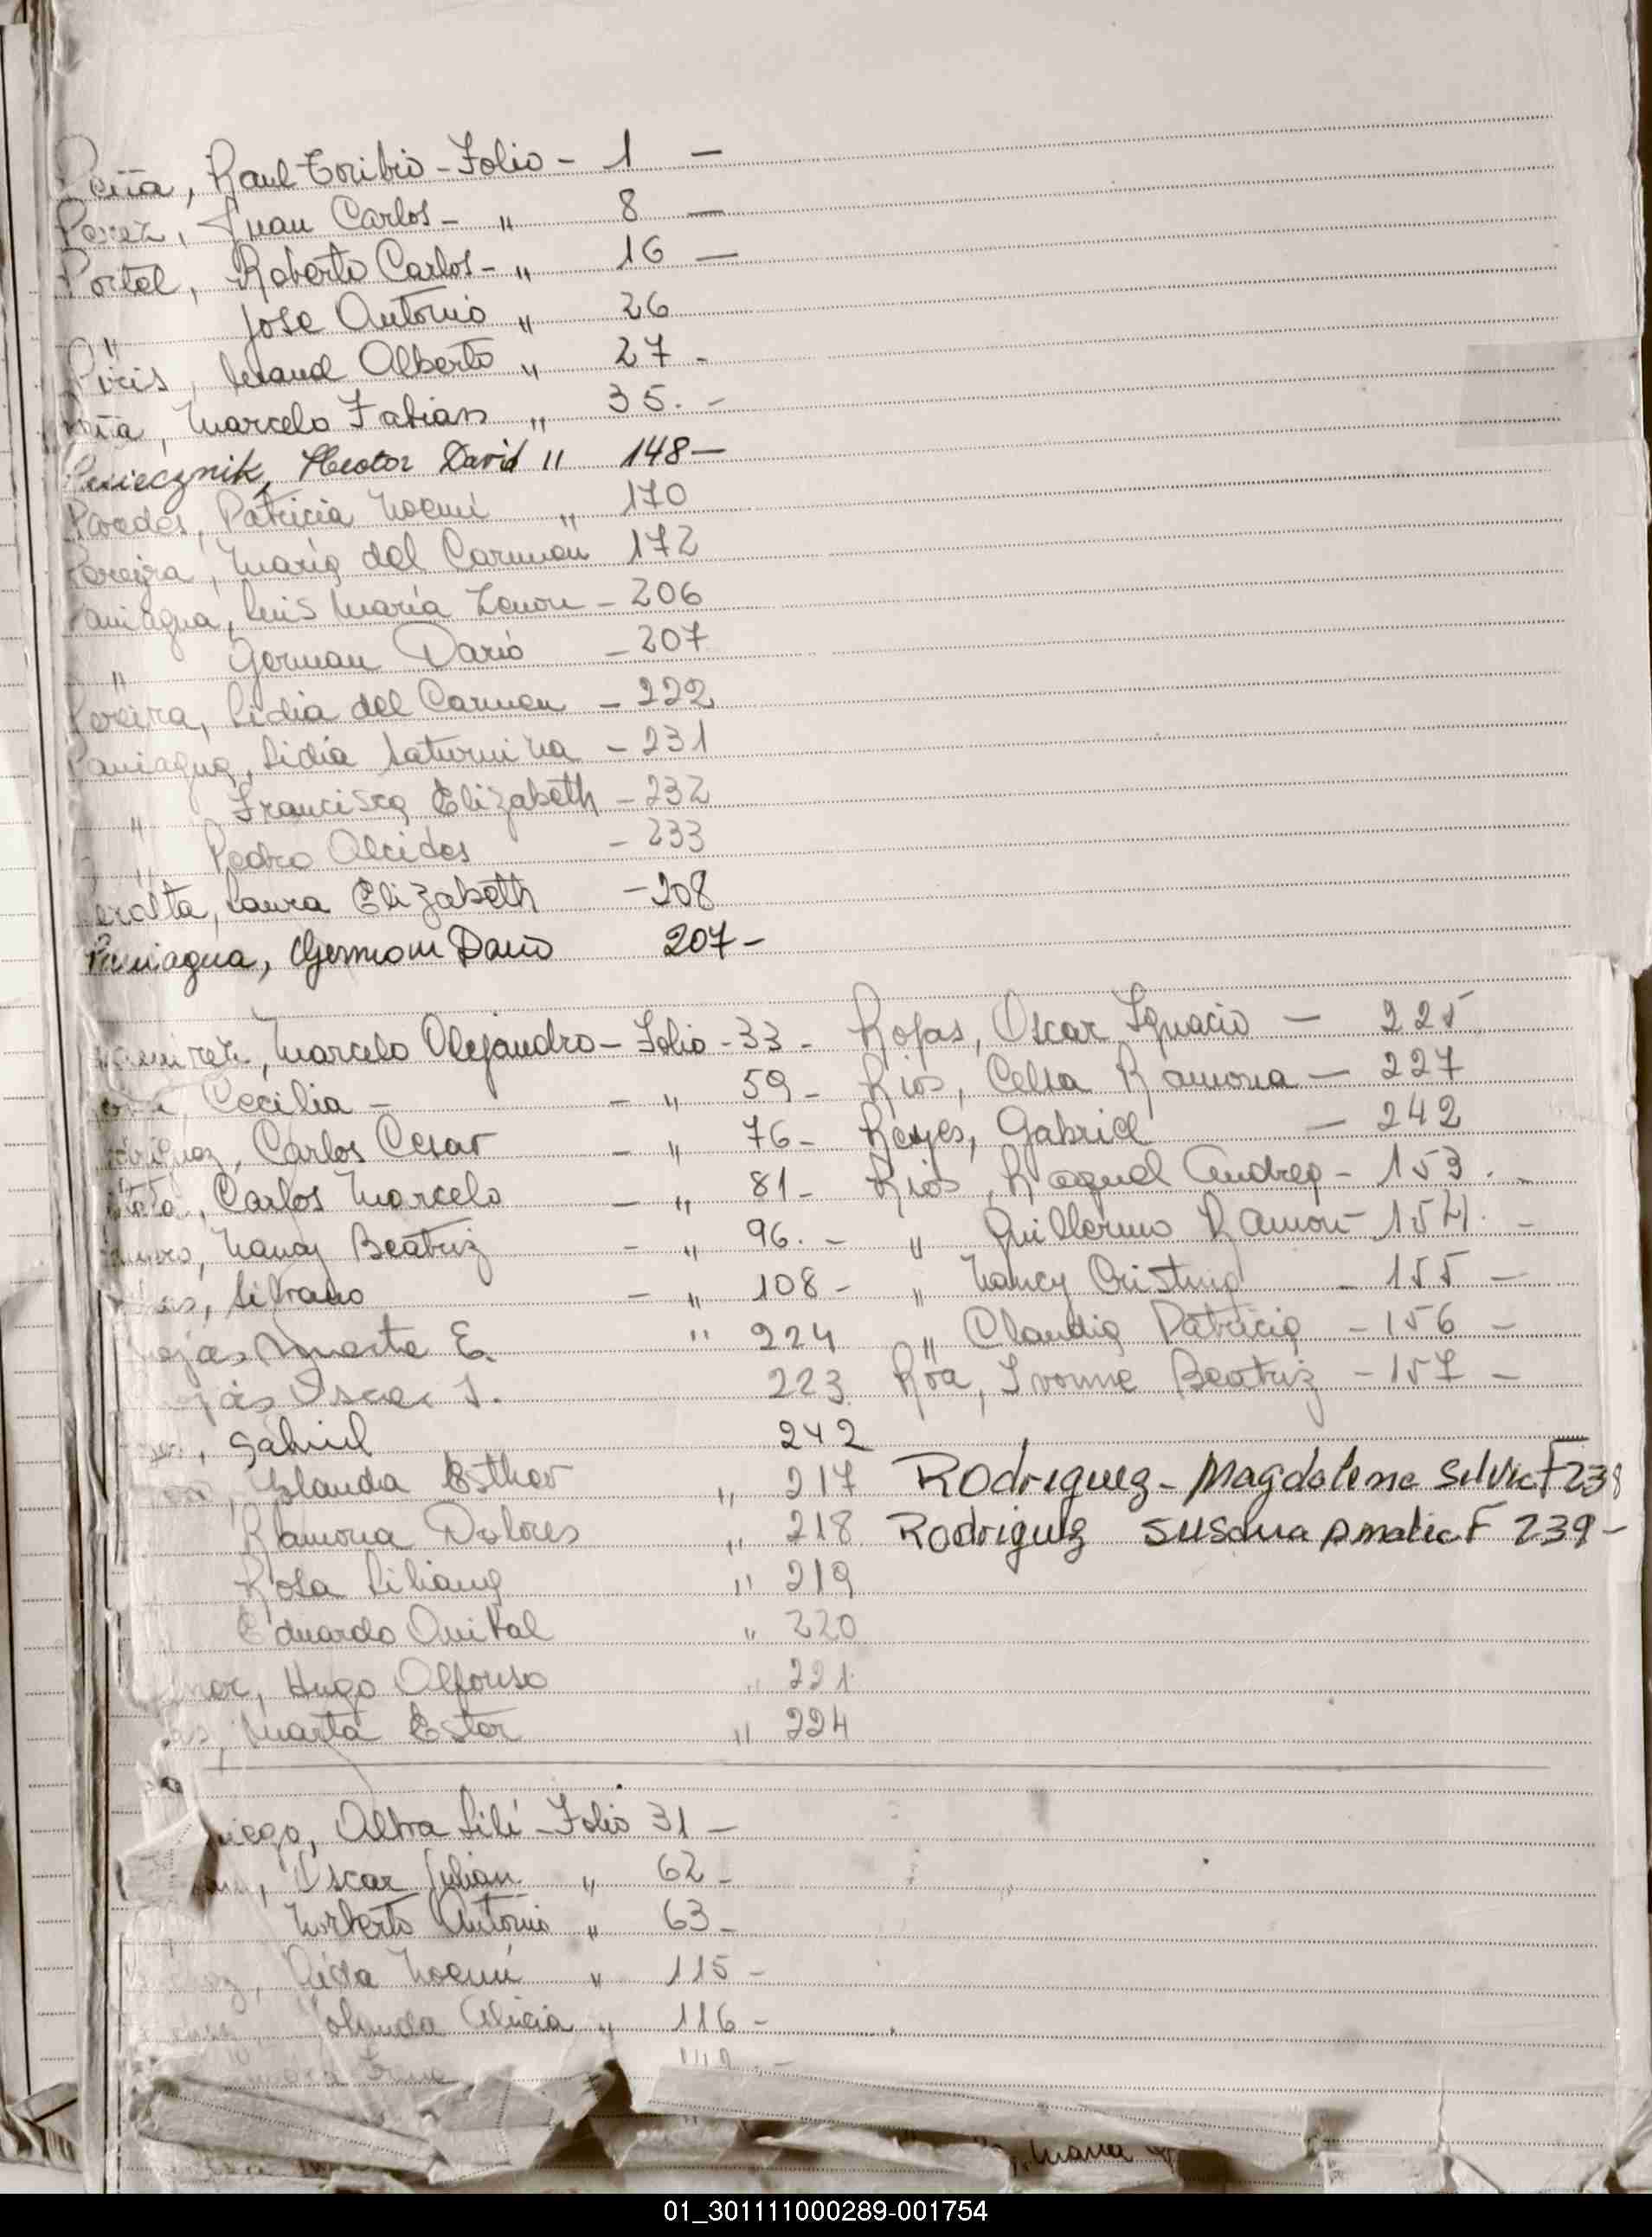 Peña, Raul Toribio - Folio - 1 -
Perez, Juan Carlos - " 8 -
Portel, Roberto Carlos - " 16 -
" Jose Antonio " 26
Piris, Manuel Alberto " 27 -
Marcelo Fabian " 35. -
Hector David " 148 -
Paredes, Patricia Noemi " 170
Pereyra, María del Carmen 172
Paniagua, Luis María Zenon - 206
" German Darió - 207
Pereira, Lidia del Carmen - 222
Paniagua, Lidia Saturnina - 231
" Francisca Elizabeth - 232
" Pedro Alcides - 233
Peralta, Laura Elizabeth - 208
Paniagua, German Dario 207 -
Ramirez, Marcelo Alejandro - Folio - 33 - Rojas, Oscar Ignacio - 225
Cecilia - - " 59 - Rios, Celsa Ramona - 227
Rodriguez, Carlos Cesar - " 76 - Reyes, Gabriel - 242
Carlos Marcelo - " 81 - Rios, Raquel Andrea - 153. -
Nancy Beatriz - " 96. - " Guillermo Ramon - 154. -
Silvano - " 108 - " Nancy Cristina - 155 -
Rojas Marta E. " 224 " Claudia Patricia - 156 -
Rojas Oscar I. 223 Roa, Ivonne Beatriz - 157 -
Gabriel 242
Yolanda Esther " 217 Rodriguez - Magdalena Silvia F 238
Ramona Dolores " 218 Rodriguez Susana Amalia F 239 -
Rosa Liliana " 219
Eduardo Anibal " 220
Hugo Alfonso " 221
Marta Ester " 224
Alba Lili - Folio 31 -
Oscar Julian " 62 -
Norberto Antonio " 63 -
Lidia Noemi " 115 -
Yolanda Alicia " 116 -
Irene
Maria
01_301111000289-001754